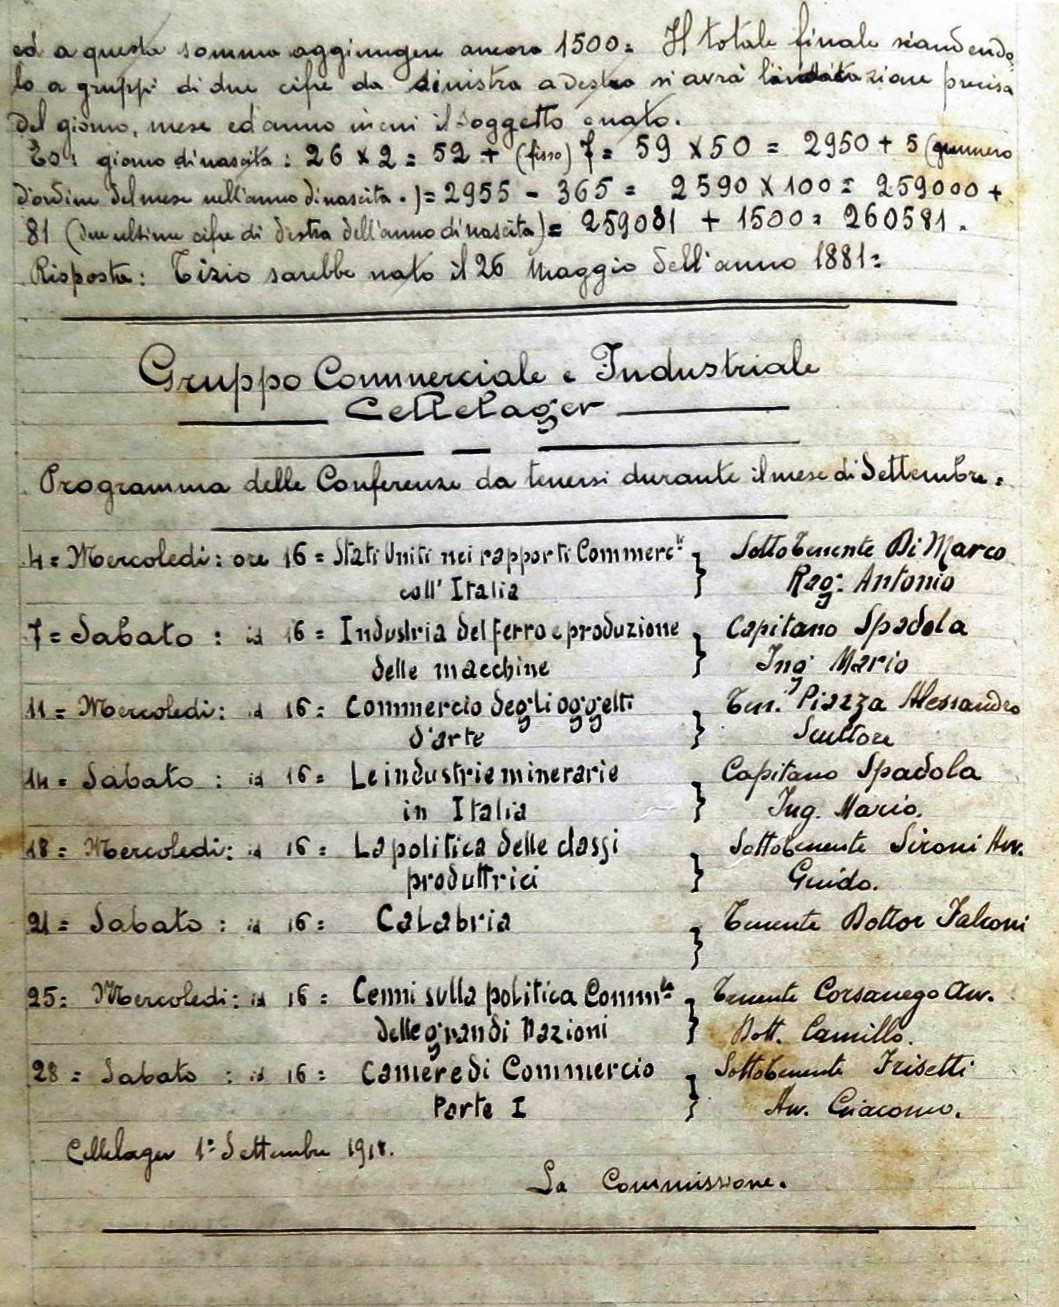 ed a questa somma aggiungere ancora 1500= Il totale finale scandendo
lo a gruppi di due cifre da sinistra a destra si avrà l'indicazione precisa
del giorno, mese ed anno in cui il soggetto è nato.
Es: giorno di nascita: 26 x 2 = 52 + (fisso) 7 = 59 x 50 = 2950 + 5 (numero
d'ordine del mese nell'anno di nascita.) = 2955 - 365 = 2590 x 100 = 259000 +
81 (due ultime cifre di destra dell'anno di nascita) = 259081 + 1500 = 260581.
Risposta: Tizio sarebbe nato il 26 Maggio dell'anno 1881=
Gruppo Commerciale e Industriale
Cellelager
Programma delle Conferenze da tenersi durante il mese di Settembre.
4 = Mercoledì: ore 16 = Stati Uniti nei rapporti Commerc.li } SottoTenente Di Marco
coll'Italia Rag. Antonio
7 = Sabato : id 16 = Industria del ferro e produzione } Capitano Spadola
delle macchine Ing. Mario
11 = Mercoledì: id 16 = Commercio degli oggetti } Ten. Piazza Alessandro
d'arte Scultore
14 = Sabato : id 16 = Le industrie minerarie } Capitano Spadola
in Italia Ing. Mario.
18 = Mercoledì: id 16 = La politica delle classi } Sottotenente Sironi Avv.
produttrici Guido.
21 = Sabato : id 16 = Calabria } Tenente Dottor Falconi
25 = Mercoledì: id 16 = Cenni sulla politica Comm.le } Tenente Corsanego Avv.
delle grandi Nazioni Dott. Camillo.
28 = Sabato : id 16 = Camere di Commercio } Sottotenente Frisetti
Parte I Avv. Giacomo.
Cellelager 1° Settembre 1918.
La Commissione.